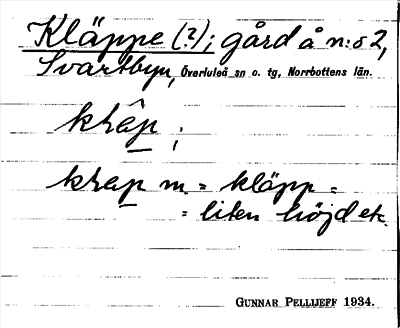 Kläppe (?); gård å n:o 2,
Svartbyn, Överluleå sn o. tg, Norrbottens län.
khâp ;
khap m. = kläpp =
= liten höjd etc.
GUNNAR PELLIJEFF 1934.